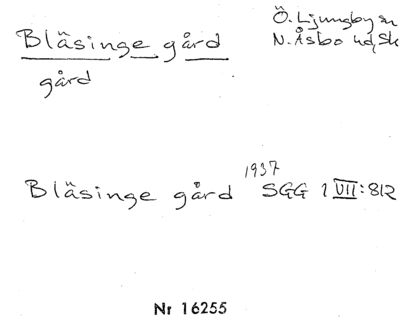 Bläsinge gård
Ö. Ljungby sn
N. Åsbo hd, Sk
gård
1937
Bläsinge gård SGG 1 VII: 812
Nr 16255